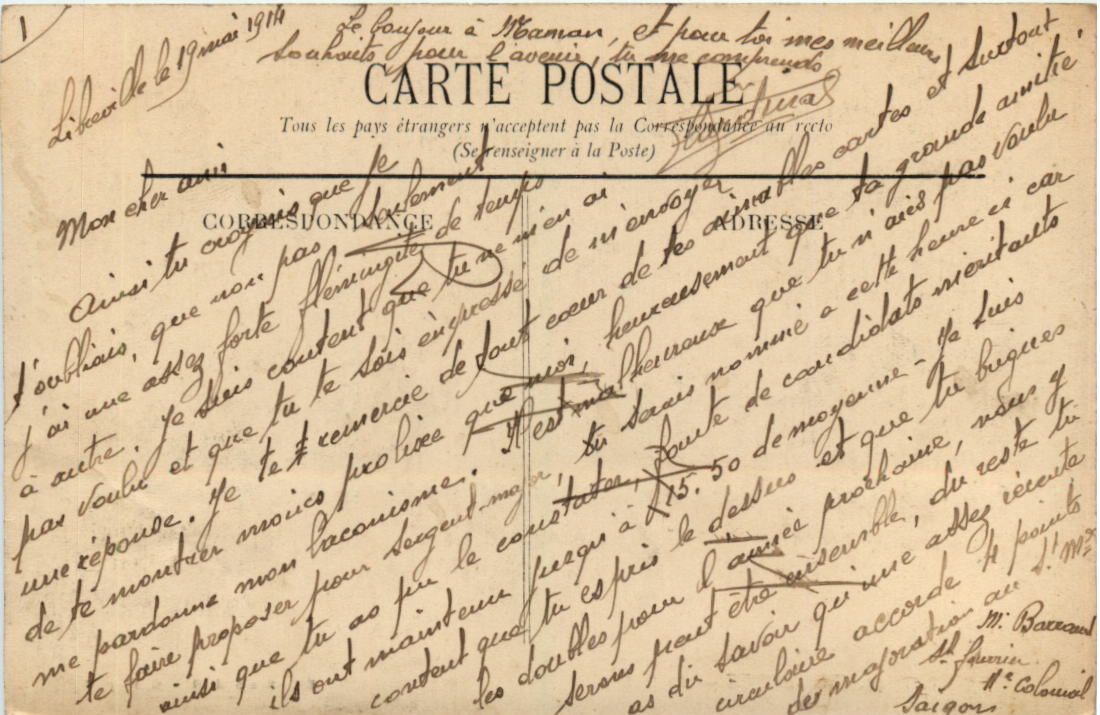 1
Libreville le 19 mai 1914
Le bonjour à Maman, et pour toi mes meilleurs
souhaits pour l'avenir, tu me comprends
CARTE POSTALE
Tous les pays étrangers n'acceptent pas la Correspondance au recto
(Se renseigner à la Poste)
CORRESPONDANCE
ADRESSE
Mon cher ami
Ainsi tu croyais que je
t'oubliais, que non pas seulement
j'ai une assez forte flémingite de temps
à autre. Je suis content que tu ne m'en ai
pas voulu et que tu te sois empressé de m'envoyer
une réponse. Je te remercie de tout cœur de tes aimables cartes et surtout
de te montrer moins prolixe que moi, heureusement que ta grande amitié
me pardonne mon laconisme. Il est malheureux que tu n'ais pas voulu
te faire proposer pour sergent-major, tu serais nommé à cette heure-ci car
ainsi que tu as pu le constater, faute de candidats méritants
ils ont maintenu jusqu'à 15.50 de moyenne - Je suis
content que tu es pris le dessus et que tu brigues
les doubles pour l'année prochaine, nous y
serons peut être ensemble, du reste tu
as dû savoir qu'une assez récente
circulaire accorde 4 points
de majoration au S.t M.or
M. Barraud
St fourrier
11e Colonial
Saïgon